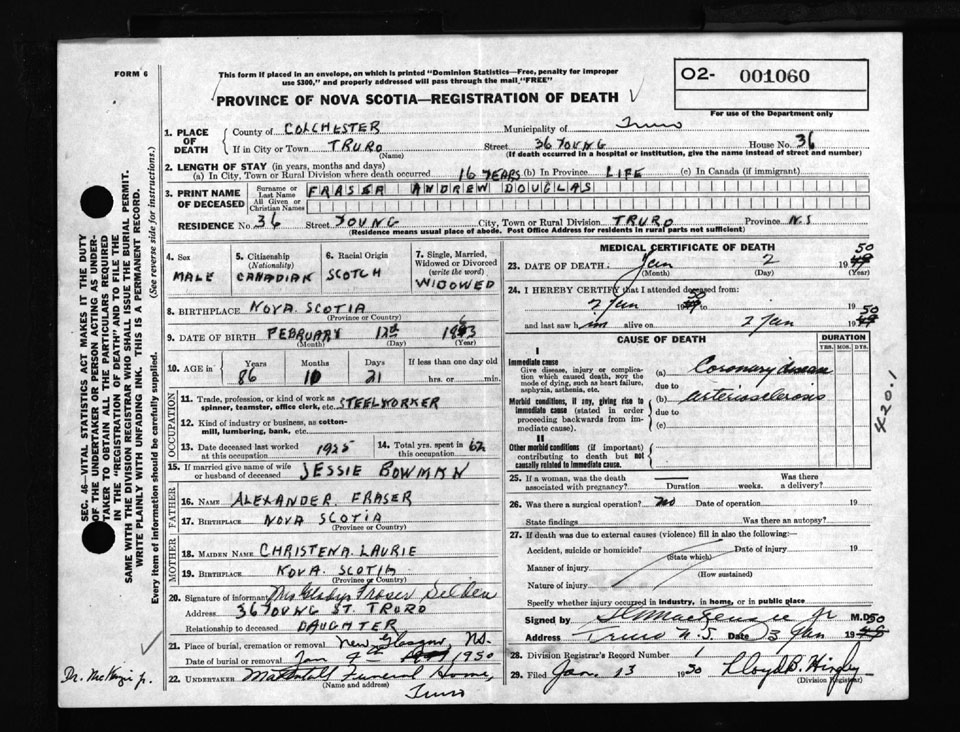 FORM 6
This form if placed in an envelope, on which is printed "Dominion Statistics—Free, penalty for improper
use $300," and properly addressed will pass through the mail "FREE"
PROVINCE OF NOVA SCOTIA—REGISTRATION OF DEATH
O2- 001060
For use of the Department only
SEC. 46—VITAL STATISTICS ACT MAKES IT THE DUTY
OF THE UNDERTAKER OR PERSON ACTING AS UNDER-
TAKER TO OBTAIN ALL THE PARTICULARS REQUIRED
IN THE "REGISTRATION OF DEATH" AND TO FILE THE
SAME WITH THE DIVISION REGISTRAR WHO SHALL ISSUE THE BURIAL PERMIT.
WRITE PLAINLY WITH UNFADING INK. THIS IS A PERMANENT RECORD.
Every item of information should be carefully supplied. (See reverse side for instructions.)
1. PLACE OF DEATH
County of COLCHESTER Municipality of Truro
If in City or Town TRURO Street 36 YOUNG House No. 36
(Name) (If death occurred in a hospital or institution, give the name instead of street and number)
2. LENGTH OF STAY (in years, months and days)
(a) In City, Town or Rural Division where death occurred 16 YEARS (b) In Province LIFE (c) In Canada (if immigrant)
3. PRINT NAME OF DECEASED
Surname or Last Name FRASER ANDREW DOUGLAS
All Given or Christian Names
RESIDENCE No. 36 Street YOUNG City, Town or Rural Division TRURO Province N.S
(Residence means usual place of abode. Post Office Address for residents in rural parts not sufficient)
4. Sex MALE
5. Citizenship (Nationality) CANADIAN
6. Racial Origin SCOTCH
7. Single, Married, Widowed or Divorced (write the word) WIDOWED
8. BIRTHPLACE NOVA SCOTIA
(Province or Country)
9. DATE OF BIRTH FEBRUARY 12th
(Month) (Day) (Year)
10. AGE in Years 86 Months 10 Days 21 If less than one day old hrs. or min.
OCCUPATION
11. Trade, profession, or kind of work as spinner, teamster, office clerk, etc. STEELWORKER
12. Kind of industry or business, as cotton-mill, lumbering, bank, etc.
13. Date deceased last worked at this occupation 1925
14. Total yrs. spent in this occupation 62
15. If married give name of wife or husband of deceased JESSIE BOWMAN
FATHER
16. NAME ALEXANDER FRASER
17. BIRTHPLACE NOVA SCOTIA
(Province or Country)
MOTHER
18. MAIDEN NAME CHRISTENA LAURIE
19. BIRTHPLACE NOVA SCOTIA
(Province or Country)
20. Signature of informant Mrs Gladys Fraser Selden
Address 36 YOUNG ST. TRURO
Relationship to deceased DAUGHTER
21. Place of burial, cremation or removal New Glasgow, N.S.
Date of burial or removal Jan 1950
22. UNDERTAKER Funeral Home,
(Name and address) Truro
Dr. McKenzie Jr.
MEDICAL CERTIFICATE OF DEATH
23. DATE OF DEATH Jan 2 1949 50
(Month) (Day) (Year)
24. I HEREBY CERTIFY that I attended deceased from:
2 Jan 1949 50 to 19
and last saw him alive on 2 Jan 1949 50
CAUSE OF DEATH
DURATION
YRS. MOS. DYS.
I
Immediate cause
Give disease, injury or complica-
tion which caused death, not the
mode of dying, such as heart failure,
asphyxia, asthenia, etc.
(a) Coronary disease
due to
Morbid conditions, if any, giving rise to
immediate cause (stated in order
proceeding backwards from im-
mediate cause).
(b) arteriosclerosis
due to
(c)
420.1
II
Other morbid conditions (if important)
contributing to death but not
causally related to immediate cause.
25. If a woman, was the death associated with pregnancy? Duration weeks. Was there a delivery?
26. Was there a surgical operation? no Date of operation 19
State findings Was there an autopsy?
27. If death was due to external causes (violence) fill in also the following:—
Accident, suicide or homicide? Date of injury 19
(State which)
Manner of injury
(How sustained)
Nature of injury
Specify whether injury occurred in industry, in home, or in public place
Signed by Jr M.D.
Address Truro N.S Date 3 Jan 1949 50
28. Division Registrar's Record Number 1
29. Filed Jan. 13 1950 Lloyd
(Division Registrar)